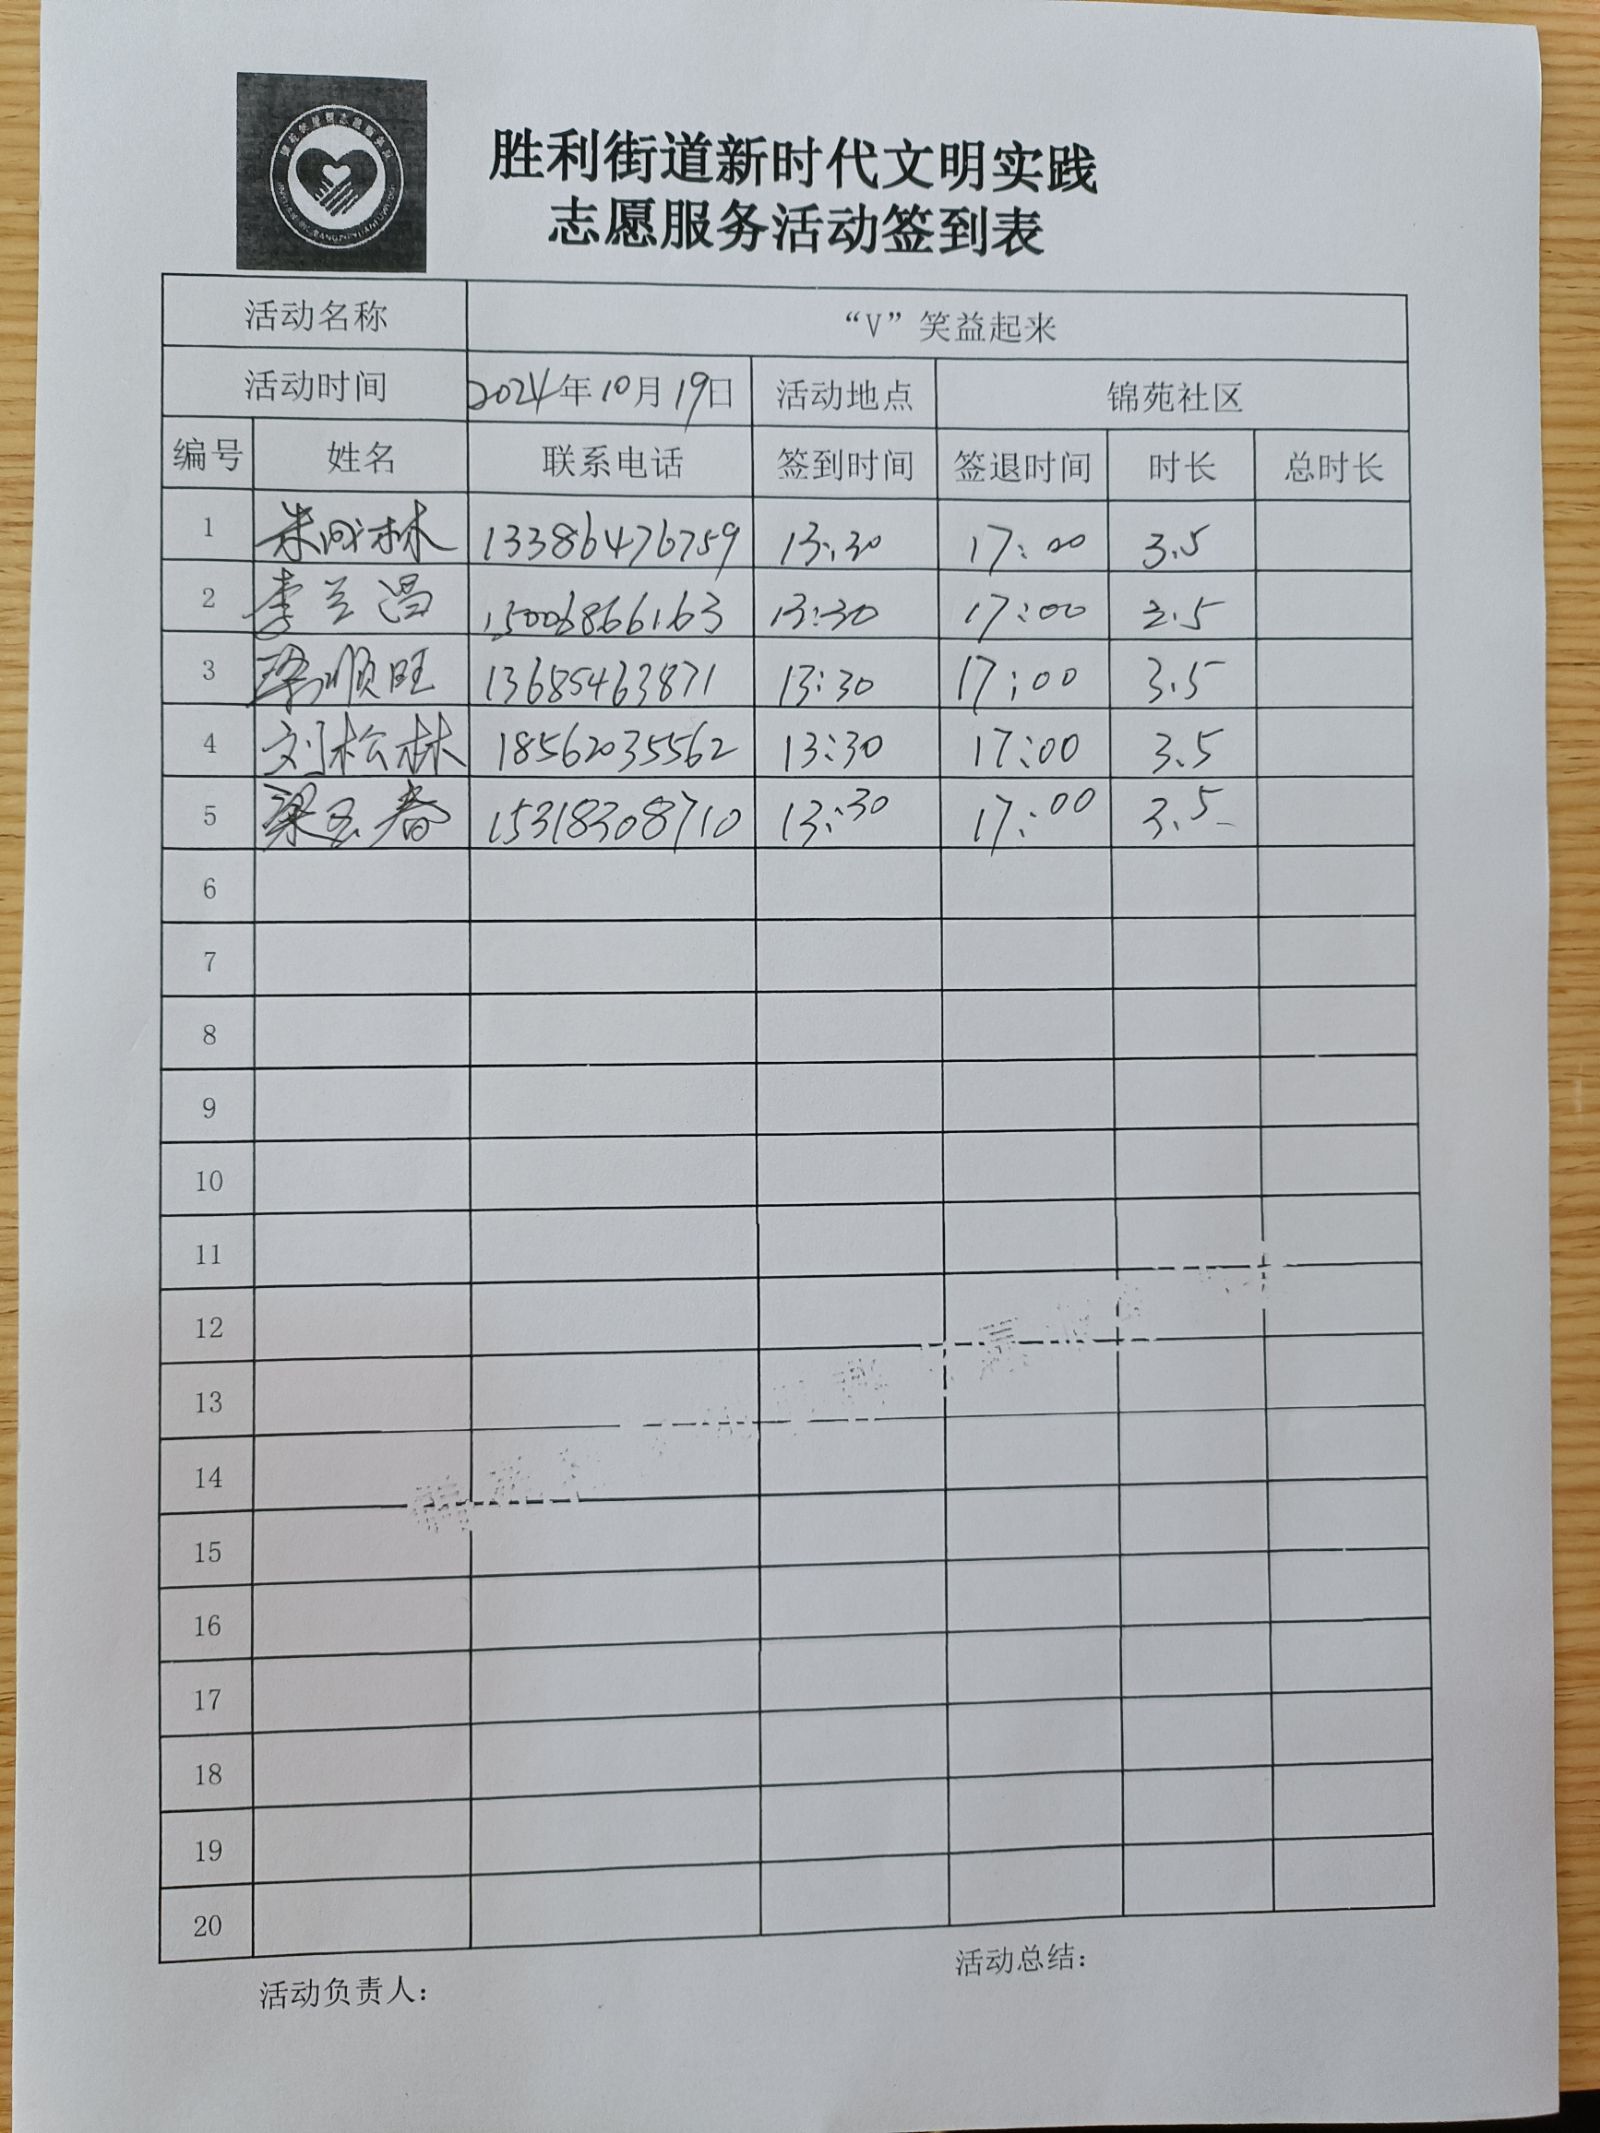 胜利街道新时代文明实践
志愿服务活动签到表
活动名称 “V”笑益起来
活动时间 2024年10月19日 活动地点 锦苑社区
编号 姓名 联系电话 签到时间 签退时间 时长 总时长
1 朱成林 13386476759 13:30 17:00 3.5
2 李兰昌 15006866163 13:30 17:00 3.5
3 顺旺 13685463871 13:30 17:00 3.5
4 刘松林 18562035562 13:30 17:00 3.5
5 梁玉春 15318308710 13:30 17:00 3.5
6
7
8
9
10
11
12
13
14
15
16
17
18
19
20
活动负责人： 活动总结：